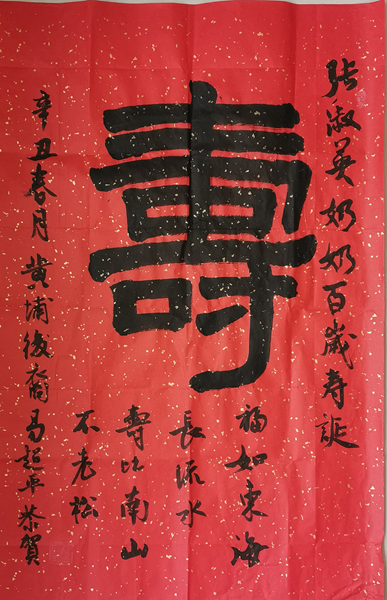 張淑英奶奶百歲寿誕
壽
福如東海
長流水
壽比南山
不老松
辛丑春月黄埔後裔易超平恭賀